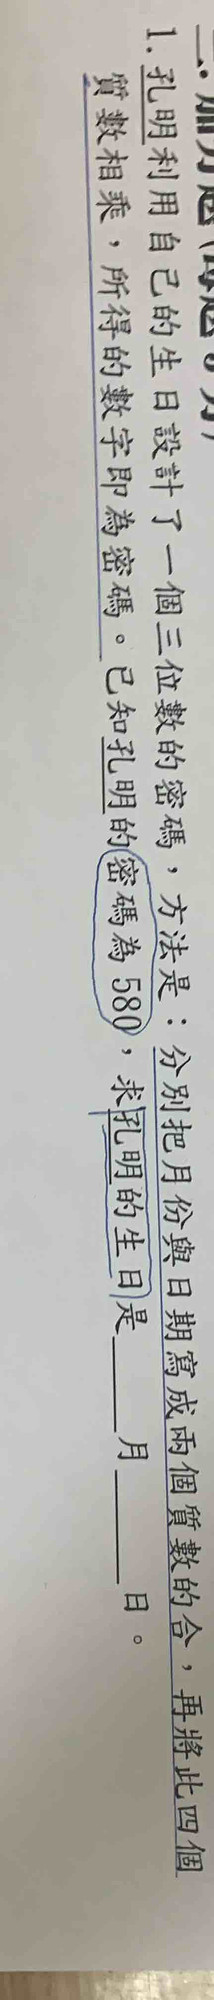 1. 孔明利用自己的生日設計了一個三位數的密碼，方法是：分別把月份與日期寫成兩個質數的合，再將此四個
質數相乘，所得的數字即為密碼。已知孔明的密碼為 580，求孔明的生日是______月______日。